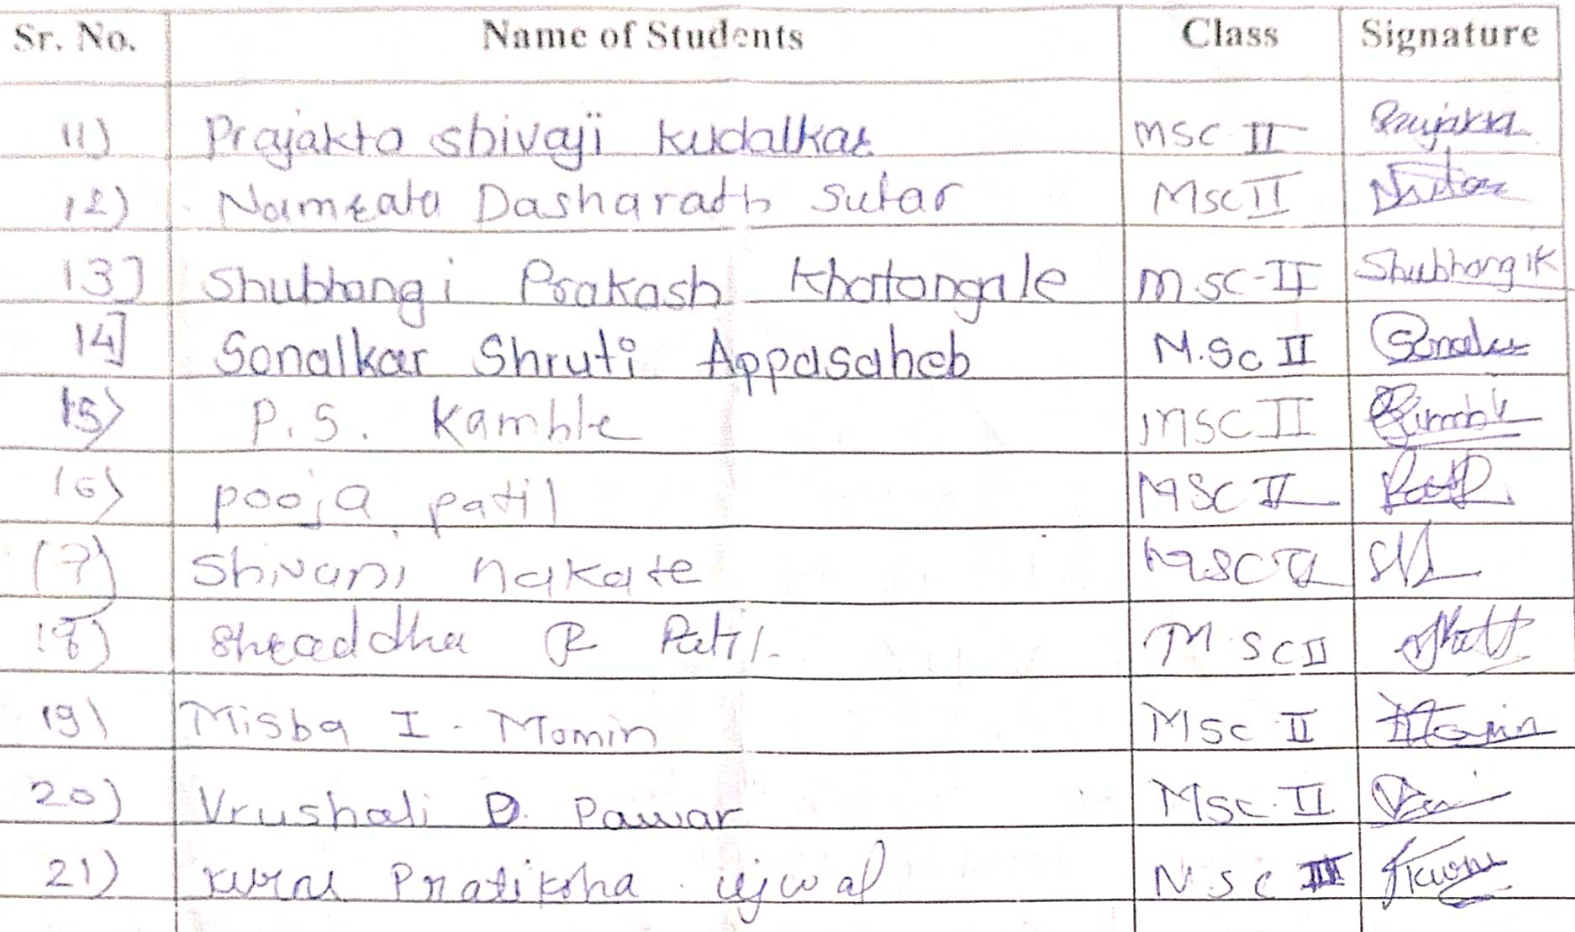 Sr. No. Name of Students Class Signature
11) Prajakta shivaji kudalkar MSC II Prajakta
12) Namrata Dasharath Sutar MSC II Nsutar
13] Shubhangi Prakash Khatangale MSC-II Shubhangik
14] Sonalkar Shruti Appasaheb M.Sc II
15) P.S. Kamble MSC II
16) pooja patil MSC II Patil
17) Shivani nakate MSC II
18) Shraddha R Patil. M.SC II
19) Misba I. Momin MSC II Momin
20) Vrushali D. Pawar MSC II
21) Pratiksha ujwal MSC II